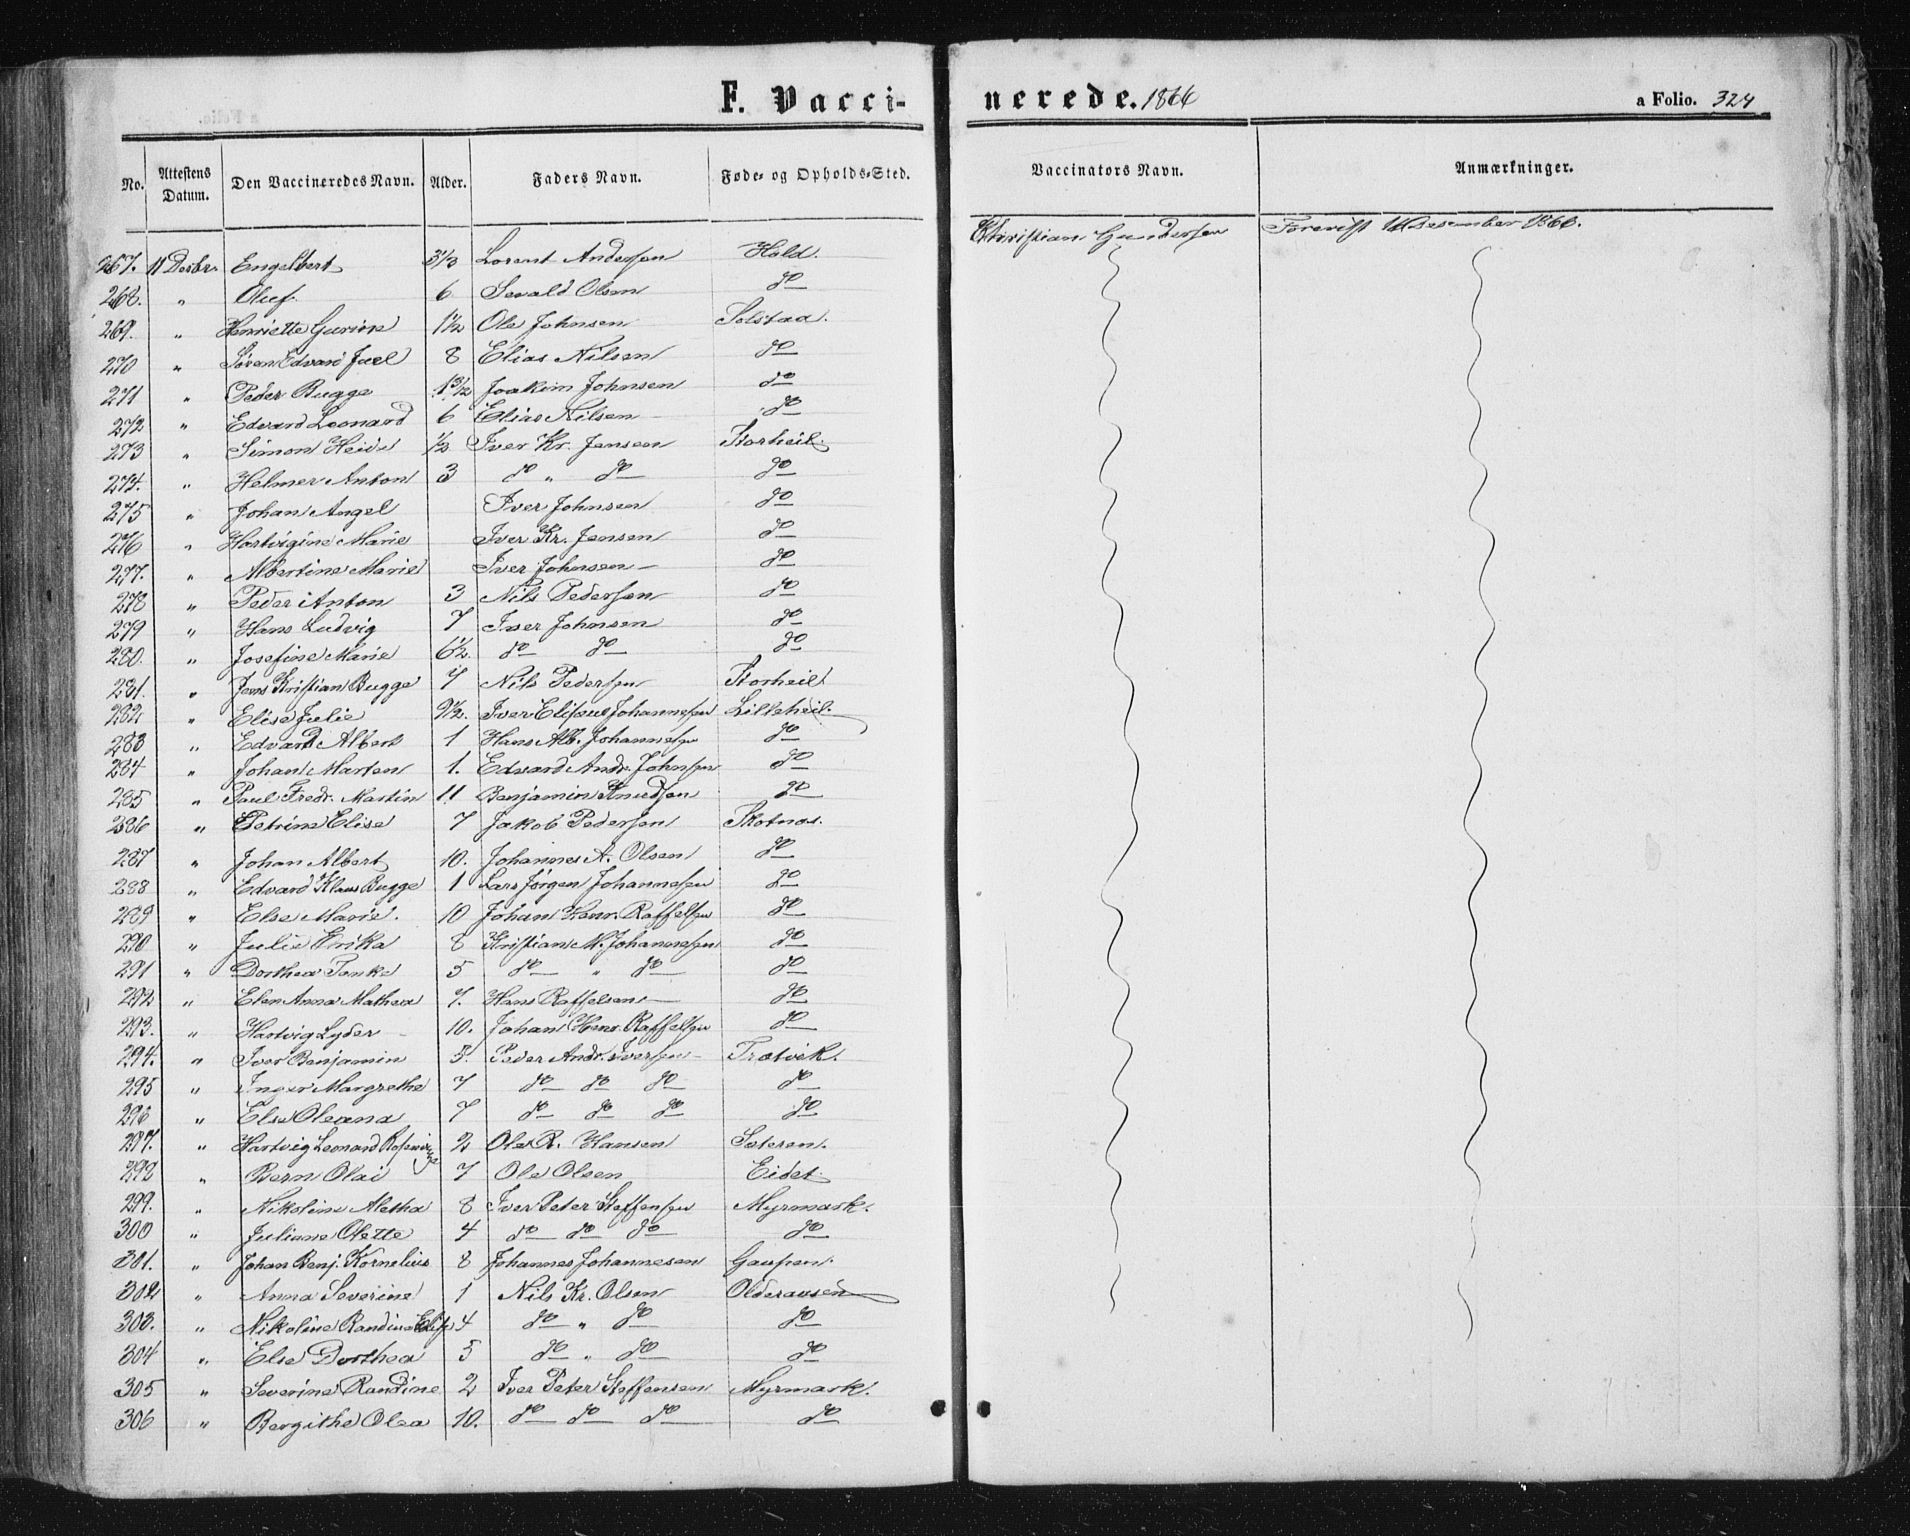 F. Vaccinerede. 1866
a Folio. 324
No. Attestens Datum. Den Vaccineredes Navn. Alder. Faders Navn. Føde- og Opholds-Sted. Vaccinators Navn. Anmærkninger.
267. 11 Desbr. Engelbert 3 1/3 Lorent Andersen Hold. Christian Gundersen Forevist 11 Desember 1866.
268. " Oluf. 6 Sevald Olsen do
269. " Henriette Gurine 1 1/2 Ole Johnsen Solstad.
270 " Søren Edvard Juel 8 Elias Nilsen do
271 " Peder Bugge Joakim Johnsen do
272 " Edvard Leonard 6 Elias Nilsen do
273 " Simon Heide 1/2 Iver Kr. Jensen Storheil.
274. " Helmer Anton 3 do " do do
275 " Johan Angel Iver Johnsen do
276 " Hartvigine Marie Iver Kr. Jensen do
277. " Albertine Marie Iver Johnsen do
278 " Peder Anton 3 Nils Pedersen do
279 " Hans Ludvig 7 Iver Johnsen do
280. " Josefine Marie 6 1/2. do do do
281. " Jens Kristian Bugge 7 Nils Pedersen Storheil
282 " Elise Julie 9 1/2. Iver Eliseus Johannesen Lilleheil.
283 " Edvard Albert 1 Hans Alb. Johannesen do
284 " Johan Marten 1. Edvard Andr. Johnsen do
285 " Paul Fredr. Martin 11 Benjamin Knudsen do
286 " Petrine Elise 7 Jakob Pedersen Skotnes.
287 " Johan Albert 10. Johannes A. Olsen do
288 " Edvard Klaus Bugge 1 Lars Jørgen Johannesen do
289 " Else Marie. 10 Johan Henr. Raffelsen do
290 " Julie Erika 8 Kristian M. Johannesen do
291 " Dorthea Tanke 5 do " do do
292 " Elen Anna Mathea 7. Hans Raffelsen do
293. " Hartvig Lyder 10. Johan Henr. Raffelsen do
294. " Iver Benjamin 5. Peder Andr. Iversen Trætvik.
295 " Inger Margrethe 7 do do do do
296 " Else Oleana 7 do do do do
297. " Hartvig Leonard Rosenvinge 2 Ole R. Hansen Sæteren.
298 " Bern Olai 7 Ole Olsen Eidet.
299. " Nikoline Aletha 8 Iver Peter Steffensen Myrmark.
300 " Juliane Olette 4 do do do do
301. " Johan Benj. Kornelius 8 Johannes Johannesen Gaupen.
302 " Anna Severine 1 Nils Kr. Olsen Olderausen
303. " Nikoline Randine Elise 4 do " do do
304 " Else Dorthea 5 do " do do
305 " Severine Randine 2 Iver Peter Steffensen Myrmark.
306 " Bergithe Olea 10. do do do do